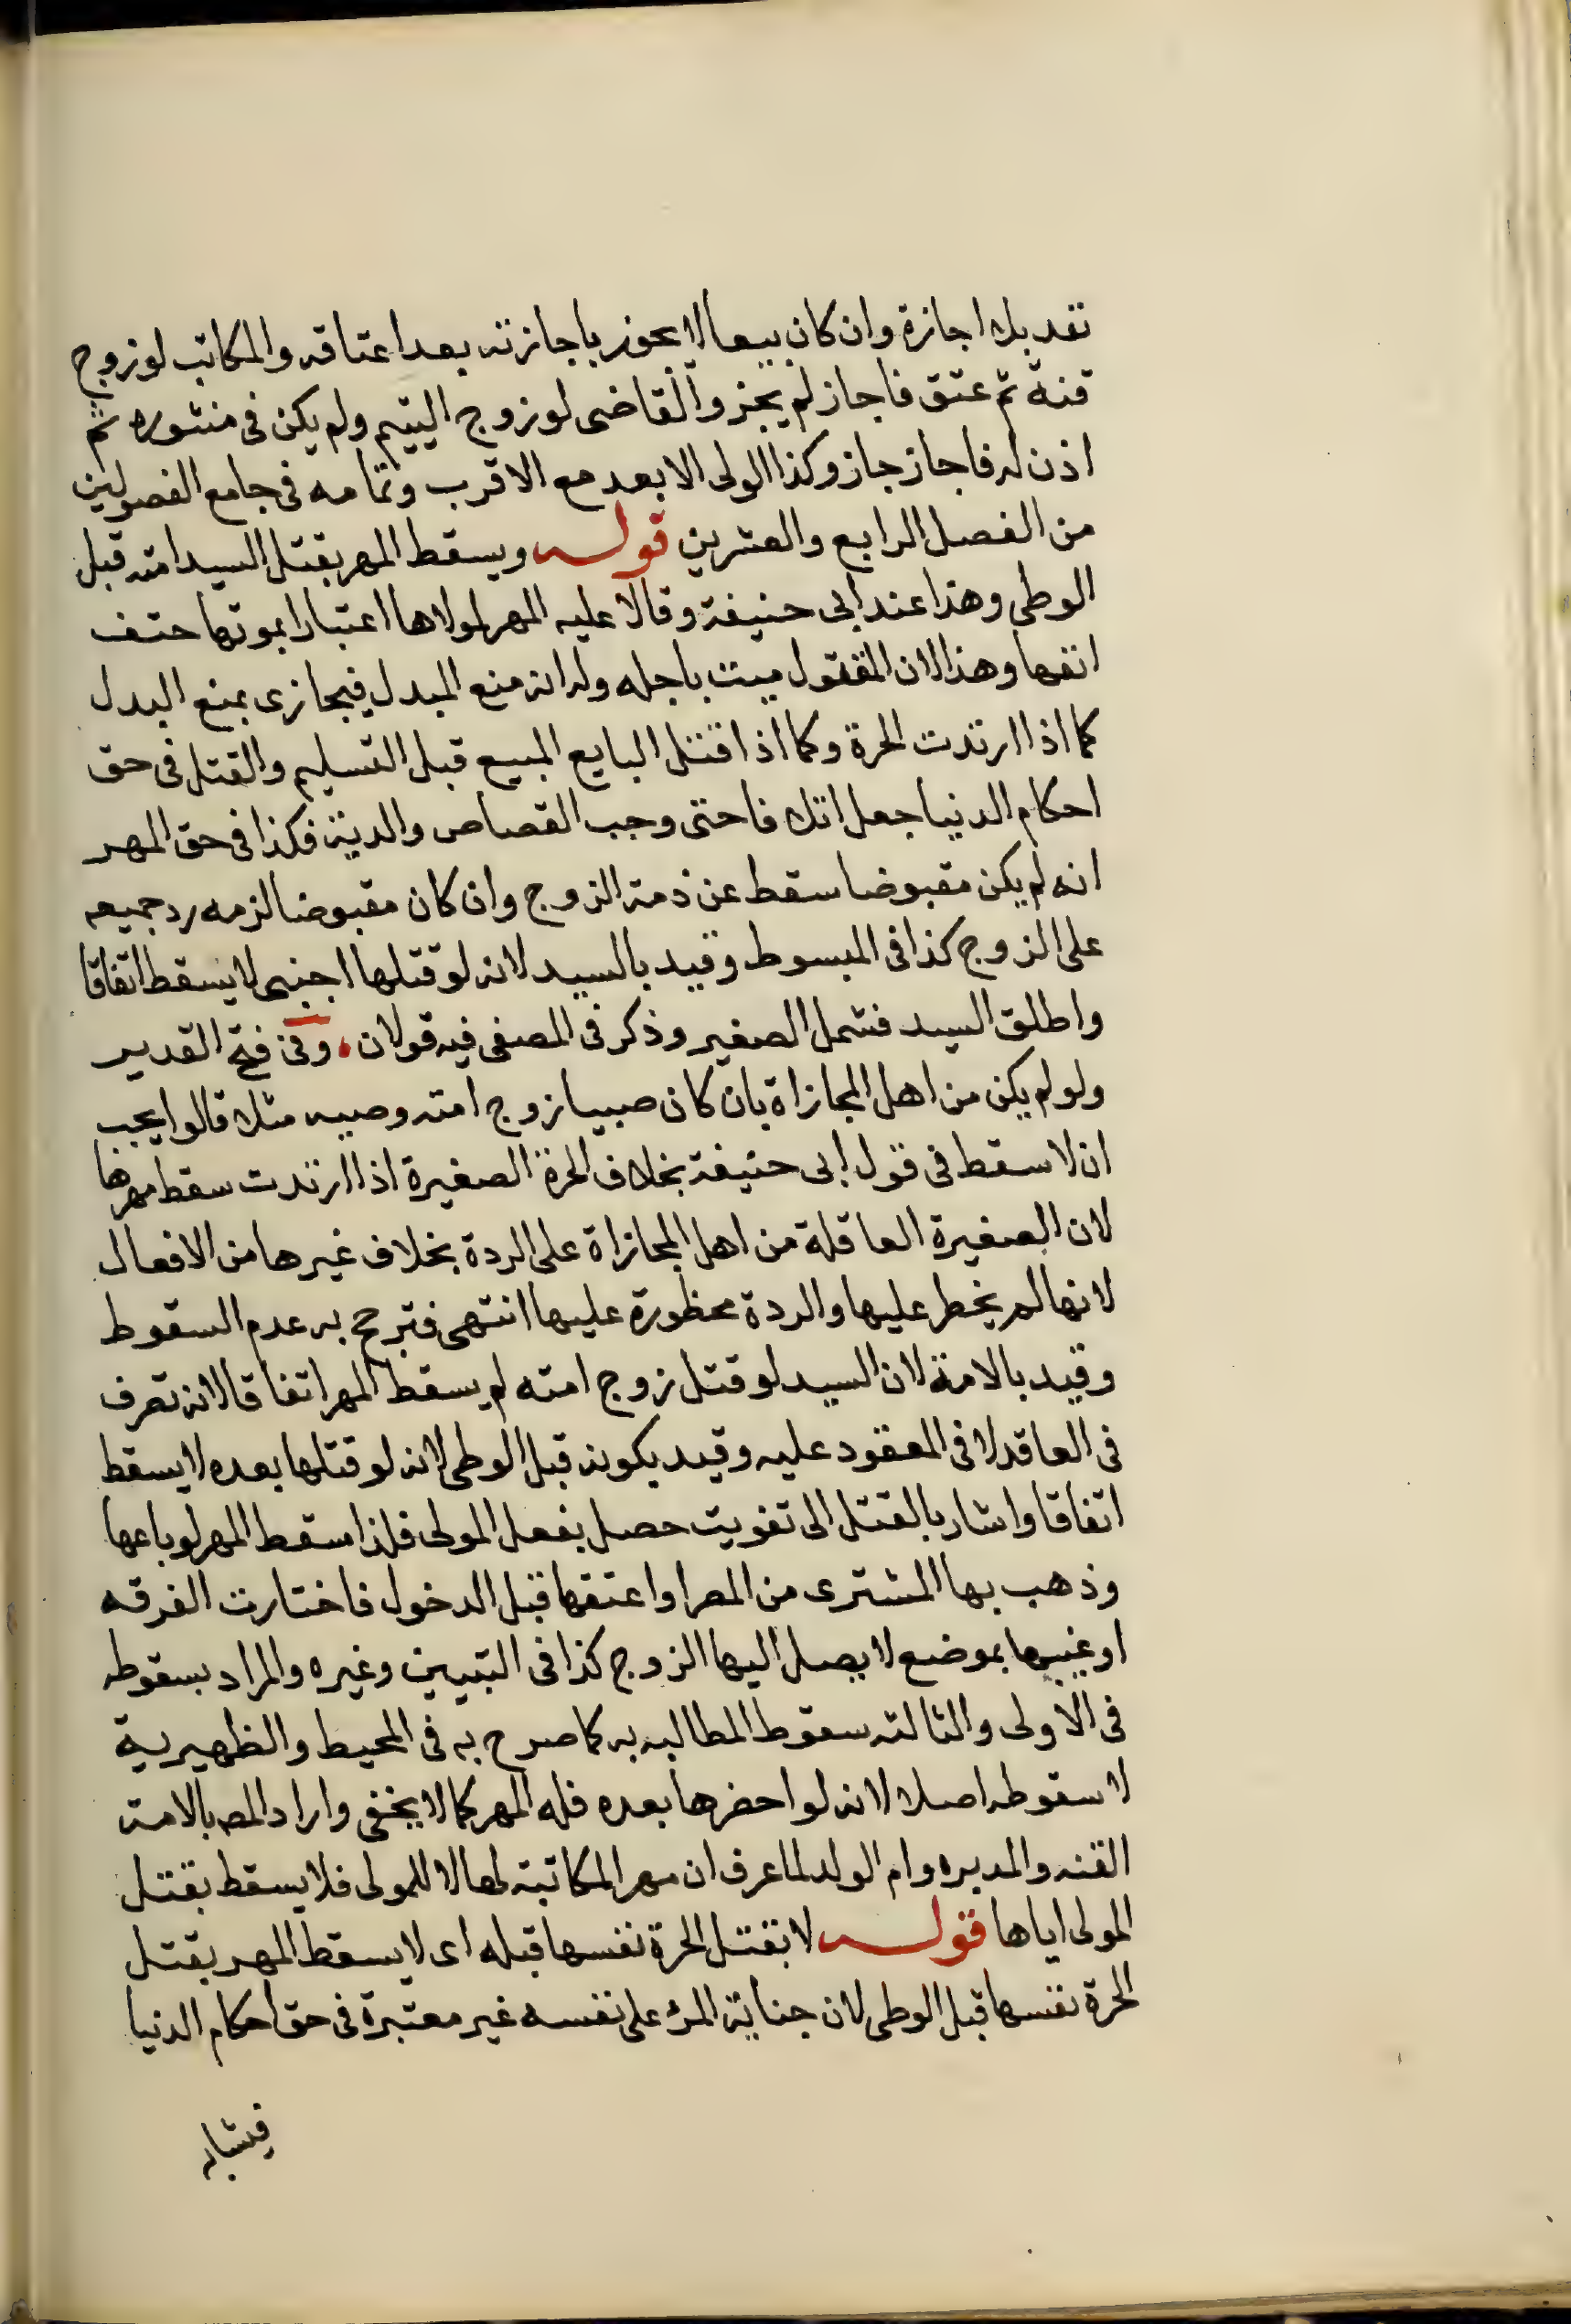 نفد بلا اجازة وان كان بيعا لا يجوز باجازته بعد اعتاقه والمكاتب لو زوج
قنه ثم عتق فاجاز لم يجز والقاضى لو زوج اليتيم ولم يكن فى منشوره ثم
اذن له فاجاز جاز وكذا الولى الابعد مع الاقرب وتمامه فى جامع الفصولين
من الفصل الرابع والعشرين قوله ويسقط المهر بقتل السيد امته قبل
الوطى وهذا عند ابى حنيفة وقالا عليه المهر لمولاها اعتبارا بموتها حتف
انفها وهذا لان المقتول ميت باجله وله انه منع المبدل فيجازى بمنع البدل
كما اذا ارتدت الحرة وكما اذا قتل البايع المبيع قبل التسليم والقتل فى حق
احكام الدنيا جعل اتلافا حتى وجب القصاص والدية فكذا فى حق المهر
انه لم يكن مقبوضا سقط عن ذمة الزوج وان كان مقبوضا لزمه رد جميعه
على الزوج كذا فى المبسوط وقيد بالسيد لانه لو قتلها اجنبى لا يسقط اتفاقا
واطلق السيد فشمل الصغير وذكر فى المصفى فيه قولان وفى فتح القدير
ولو لم يكن من اهل المجازاة بان كان صبيا زوج امته وصيه مثلا قالوا يجب
ان لا سقط فى قول ابى حنيفة بخلاف الحرة الصغيرة اذا ارتدت سقط مهرها
لان الصغيرة العاقلة من اهل المجازاة على الردة بخلاف غيرها من الافعال
لانها لم يخطر عليها والردة محظورة عليها انتهى فترجح به عدم السقوط
وقيد بالامة لان السيد لو قتل زوج امته لم يسقط المهر اتفاقا لانه تصرف
فى العاقد لا فى المعقود عليه وقيد بكونه قبل الوطى لانه لو قتلها بعده لا يسقط
اتفاقا واشار بالقتل الى تفويت حصل بفعل المولى فلذا سقط المهر لو باعها
وذهب بها المشترى من المصر او اعتقها قبل الدخول فاختارت الفرقه
او غيبها بموضع لا يصل اليها الزوج كذا فى التبيين وغيره والمراد بسقوطه
فى الاولى والثالثه سقوط المطالبه به كما صرح به فى المحيط والظهيرية
لا سقوطه اصلا لانه لو احضرها بعده فله المهر كما لا يخفى واراد المص بالامة
القنه والمدبره وام الولد لما عرف ان مهر المكاتبة لها لا للمولى فلا يسقط بقتل
المولى اياها قوله لا بقتل الحرة نفسها قبله اى لا يسقط المهر بقتل
الحرة نفسها قبل الوطى لان جناية المرء على نفسه غير معتبرة فى حق احكام الدنيا
فيشابه